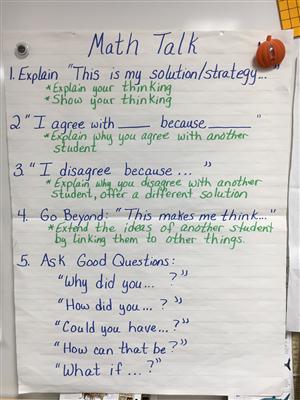 Math Talk
1. Explain "This is my solution/strategy..."
*Explain your thinking
*Show your thinking
2. "I agree with ____ because ______"
*Explain why you agree with another
student
3. "I disagree because ..."
*Explain why you disagree with another
student, offer a different solution
4. Go Beyond: "This makes me think..."
*Extend the ideas of another student
by linking them to other things.
5. Ask Good Questions:
"Why did you... ?"
"How did you... ?"
"Could you have...?"
"How can that be?"
"What if ...?"